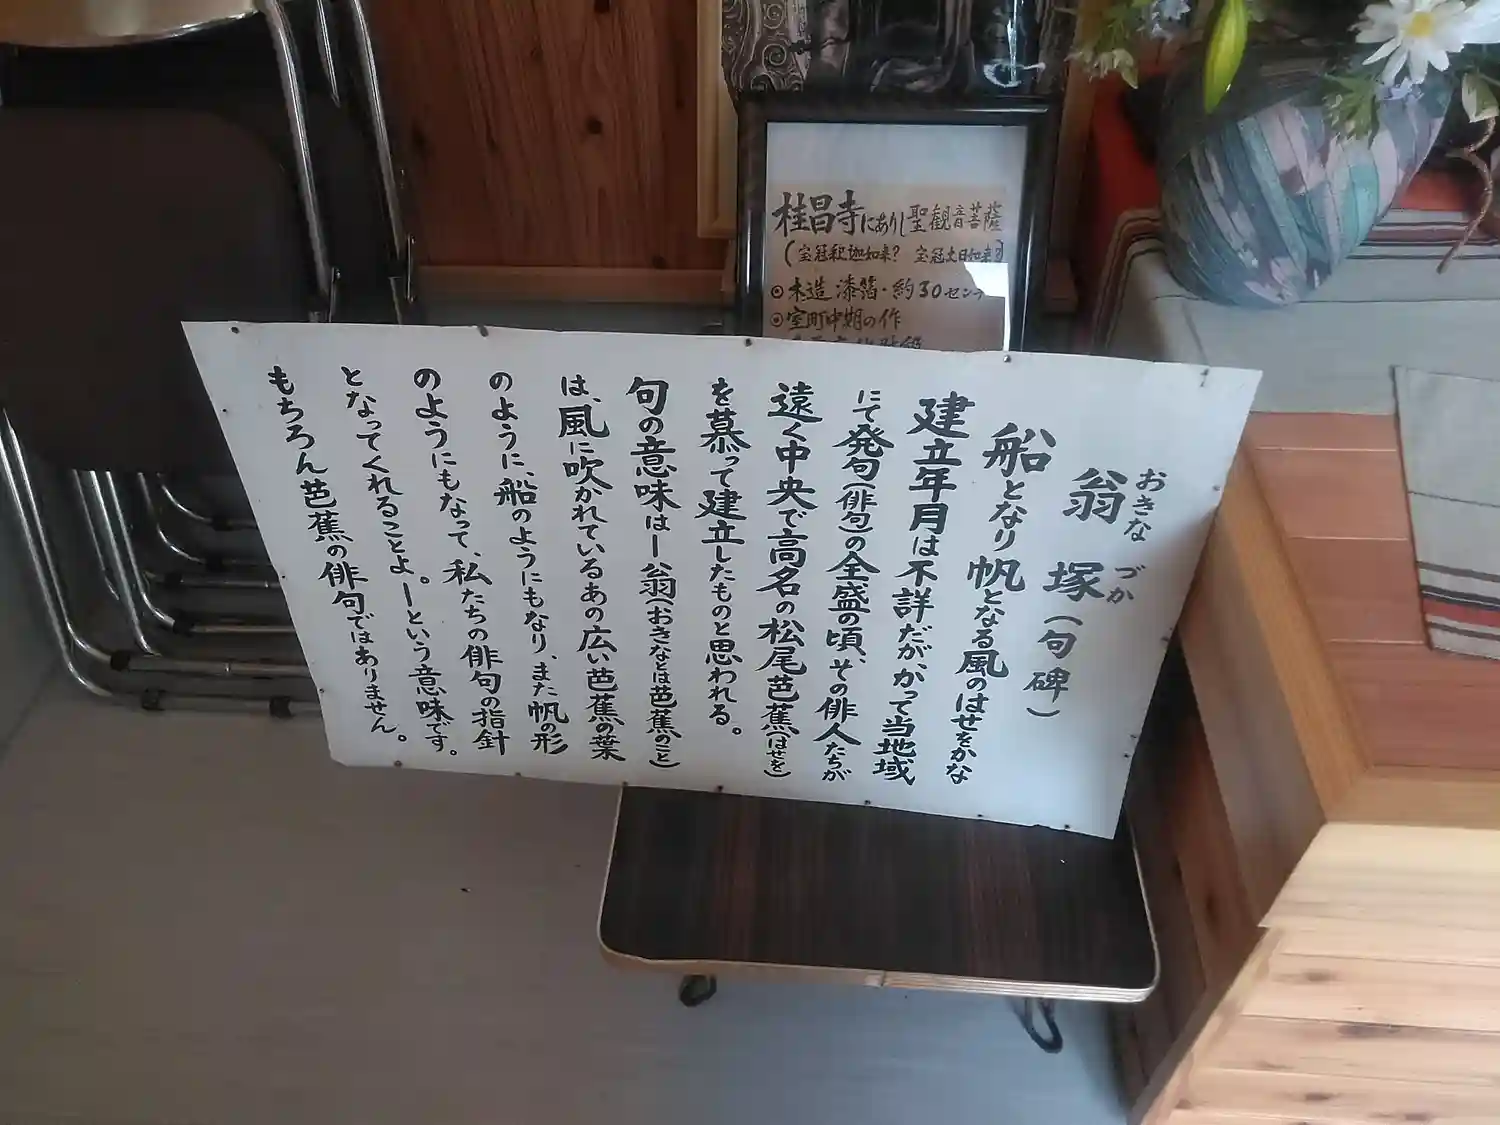 翁塚(句碑)
おきなづか
船となり帆となる風のはせをかな
建立年月は不詳だが、かって当地域
にて発句(俳句)の全盛の頃、その俳人たちが
遠く中央で高名の松尾芭蕉(はせを)
を慕って建立したものと思われる。
句の意味はー翁(おきなとは芭蕉のこと)
は、風に吹かれているあの広い芭蕉の葉
のように、船のようにもなり、また帆の形
のようにもなって、私たちの俳句の指針
となってくれることよ。ーという意味です。
もちろん芭蕉の俳句ではありません。
桂昌寺にありし聖観音菩薩
(宝冠釈迦如来? 宝冠大日如来?)
◎木造 漆箔・約30センチ
◎室町中期の作